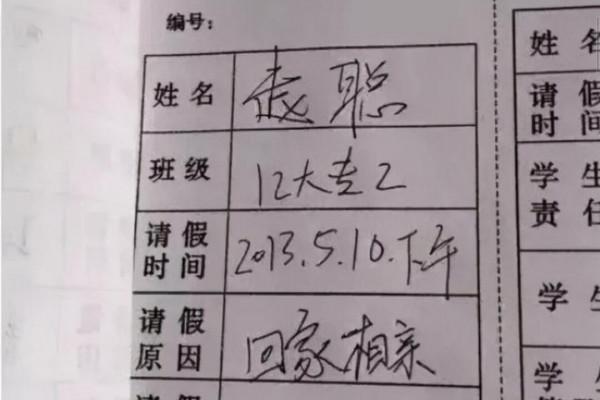 编号：
姓名 聪
班级 12大专2
请假时间 2013.5.10.下午
请假原因 回家相亲
请假
姓名
请假时间
学生
责任
学生
学生